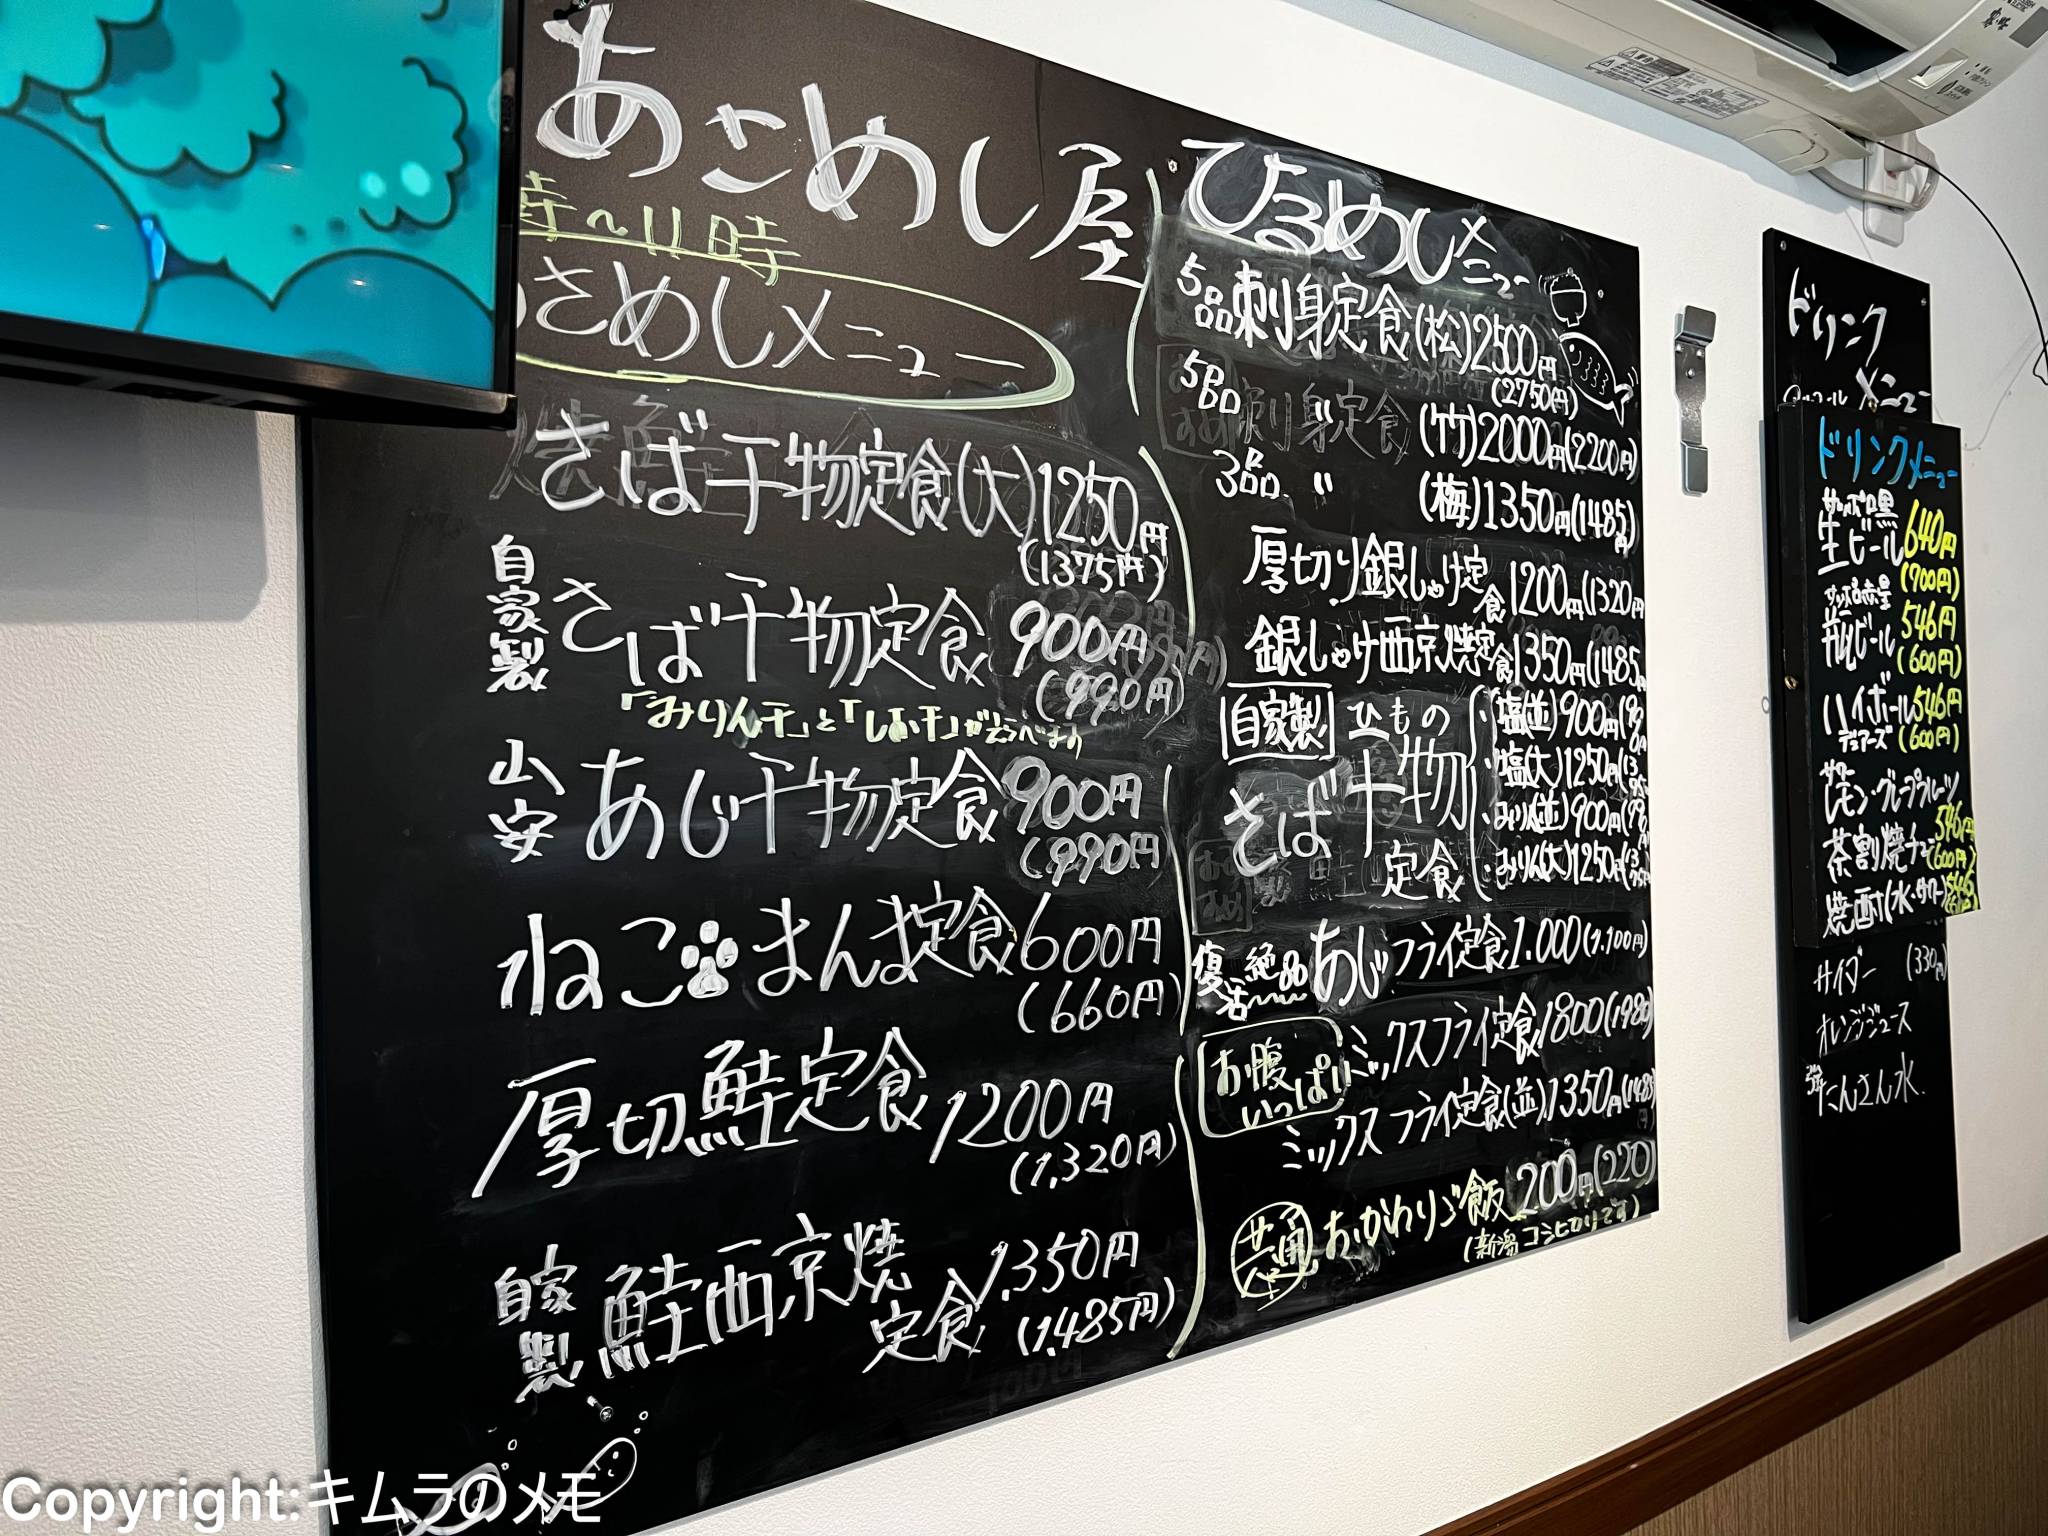 あさめし屋
時〜11時
さめしメニュー
さば干物定食(大)1250円
(1375円)
自家製 さば干物定食 900円
(990円)
「みりん干」と「しお干」が選べます
山安 あじ干物定食 900円
(990円)
ねこまんま定食 600円
(660円)
厚切鮭定食 1200円
(1,320円)
自家製 鮭西京焼定食 1,350円
(1,485円)
ひるめしメニュー
5品刺身定食(松)2500円
(2750円)
5品 〃 (竹)2000円(2200円)
3品 〃 (梅)1350円(1485円)
厚切り銀しゃけ定食1200円(1320円
銀しゃけ西京焼定食1350円(1485
自家製 ひもの
さば干物定食
・塩(並)900円
・塩(大)1250円
・みりん(並)900円
・みりん(大)1250円
復活 絶品 あじフライ定食1.000(1,100円)
お腹いっぱい ミックスフライ定食1800(1980
ミックスフライ定食(並)1350円(1485円
共通 おかわりご飯 200円(220)
(新潟コシヒカリです)
ドリンク
メニュー
ドリンクメニュー
サッポロ黒
生ビール 640円
(700円)
瓶ビール 546円
(600円)
ハイボール 546円
デュワーズ (600円)
サワー
レモン・グレープフルーツ
546円
茶割焼チュー (600円)
焼酎(水・サワー) 546
サイダー (330円)
オレンジジュース
強たんさん水
Copyright:キムラのメモ